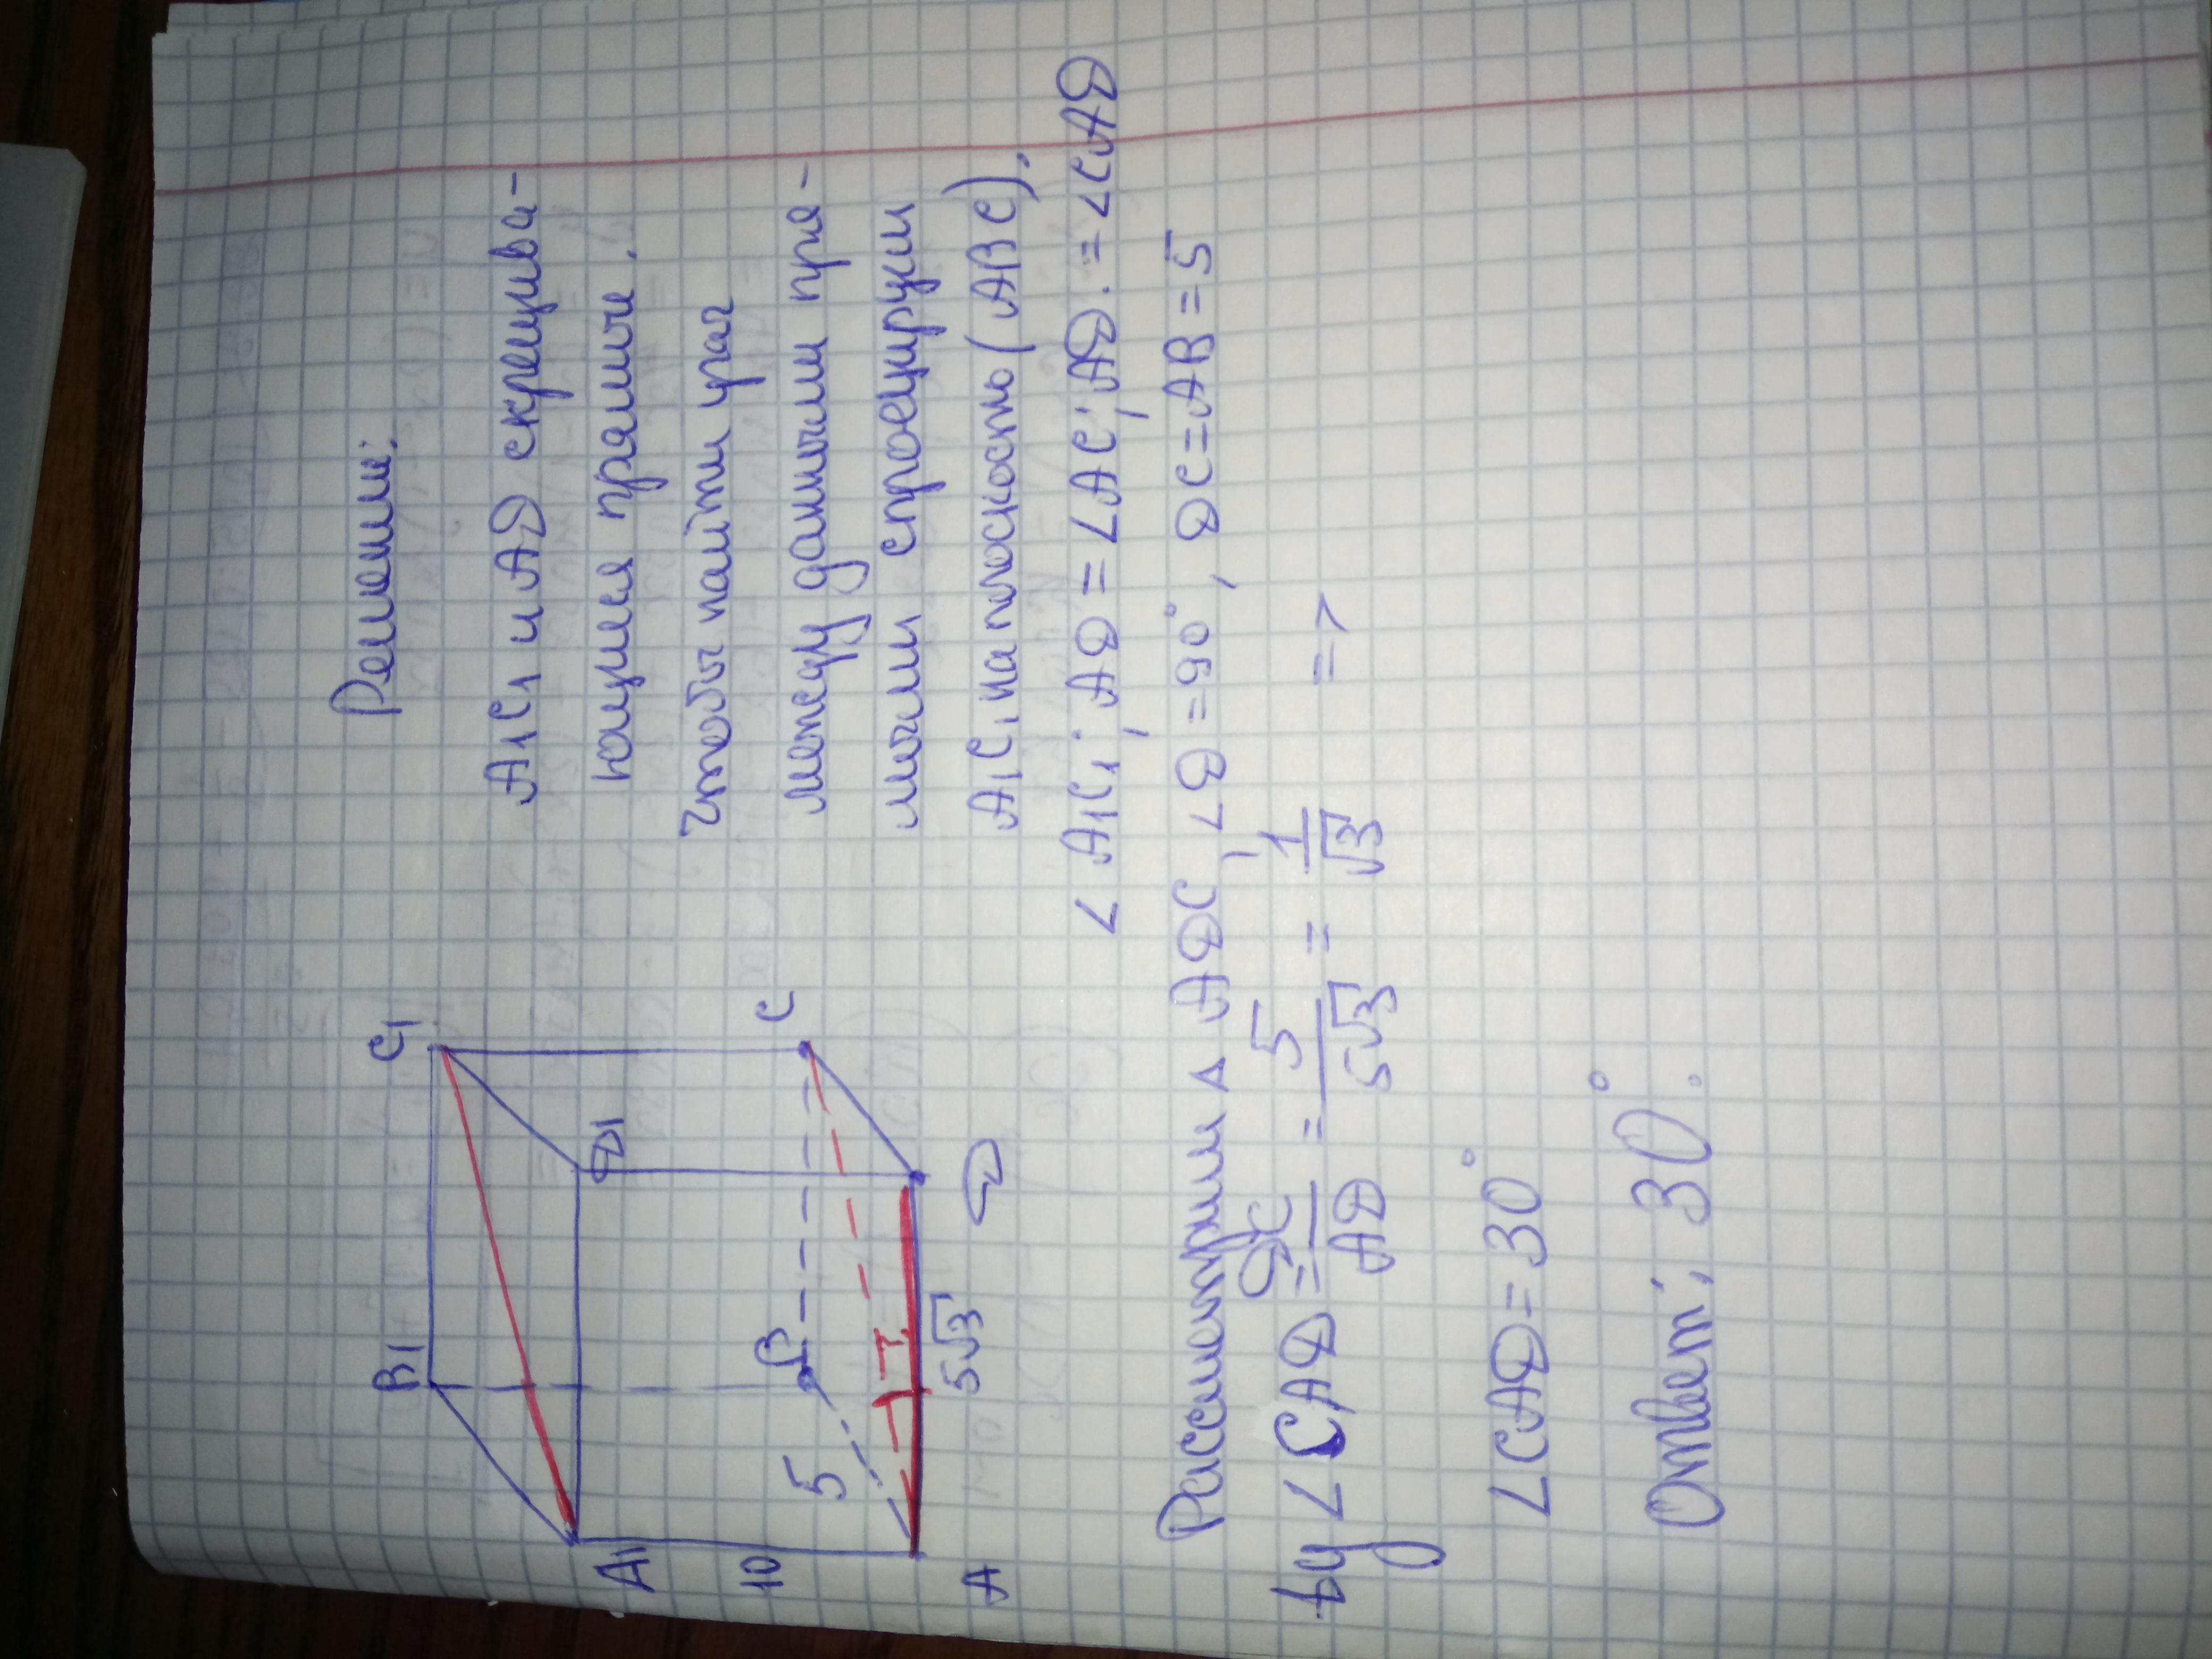 Решение:
A₁C₁ и AD скрещива-
ющиеся прямые.
Чтобы найти угол
между данными пря-
мыми спроецируем
A₁C₁ на плоскость (ABC).
∠ A₁C₁; AD = ∠AC; AD. = ∠CAD
B₁
C₁
A₁
D₁
10
5
B
C
A
5√3
D
Рассмотрим △ ADC, ∠D = 90°, DC = AB = 5
tg ∠CAD = DC/AD = 5/5√3 = 1/√3 =>
∠CAD = 30°
Ответ: 30°.